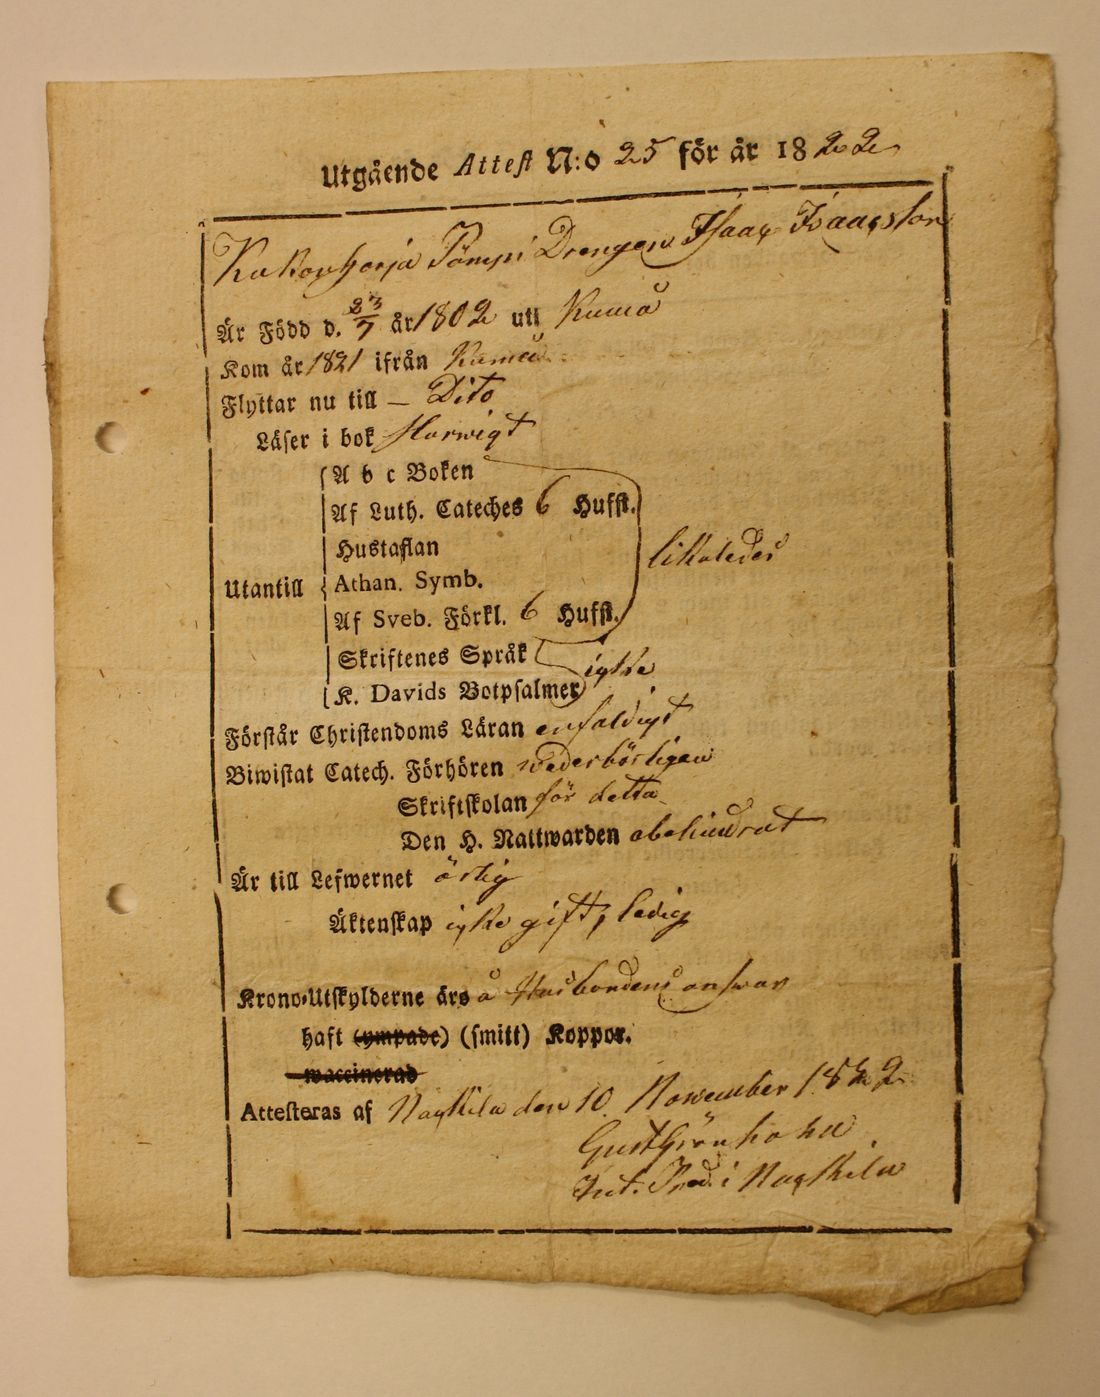 Utgående Attest N:o 25 för år 1822
Isaac Isaacsson
Är Född d. 23/7 år 1802 uti Kumo
Kom år 1821 ifrån Kumo
Flyttar nu till — Dito
Läser i bok Horwigt
A b c Boken
Af Luth. Cateches 6 Hufst.
Hustaflan
likaledes
Utantill Athan. Symb.
Af Sveb. Förkl. 6 Hufst.
Skriftenes Språk
icke
K. Davids Botpsalmer
Förstår Christendoms Läran enfaldigt
Biwistat Catech. Förhören wederbörligen
Skriftskolan för detta
Den H. Nattwarden obehindrat
Är till Lefwernet ärlig
Äktenskap icke gift, ledig
Krono-Utskylderne äro å Husbondens answar
haft (ympade) (smitt) Koppor.
waccinerad
Attesteras af Nackila den 10. November 1822
Gust Grönholm
Pred. i Nackila